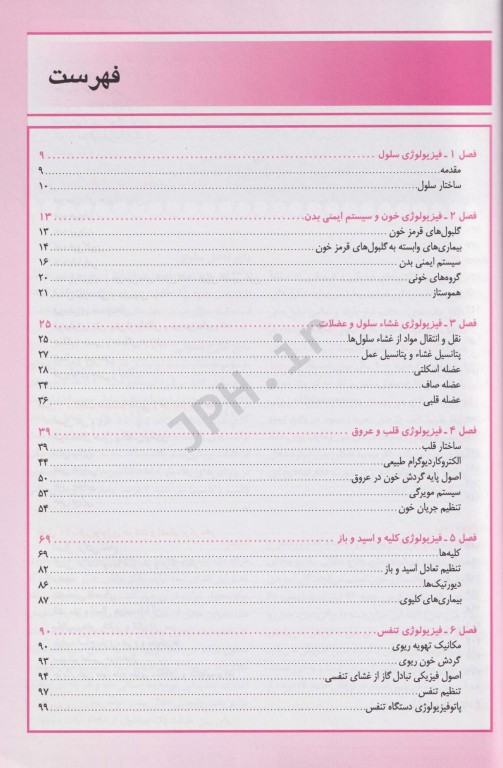 فهرست
فصل ۱ ـ فیزیولوژی سلول ۹
مقدمه ۹
ساختار سلول ۱۰
فصل ۲ ـ فیزیولوژی خون و سیستم ایمنی بدن ۱۳
گلبول‌های قرمز خون ۱۳
بیماری‌های وابسته به گلبول‌های قرمز خون ۱۴
سیستم ایمنی بدن ۱۶
گروه‌های خونی ۲۰
هموستاز ۲۱
فصل ۳ ـ فیزیولوژی غشاء سلول و عضلات ۲۵
نقل و انتقال مواد از غشاء سلول‌ها ۲۵
پتانسیل غشاء و پتانسیل عمل ۲۷
عضله اسکلتی ۲۸
عضله صاف ۳۴
عضله قلبی ۳۶
فصل ۴ ـ فیزیولوژی قلب و عروق ۳۹
ساختار قلب ۳۹
الکتروکاردیوگرام طبیعی ۴۴
اصول پایه گردش خون در عروق ۵۰
سیستم مویرگی ۵۳
تنظیم جریان خون ۵۴
فصل ۵ ـ فیزیولوژی کلیه و اسید و باز ۶۹
کلیه‌ها ۶۹
تنظیم تعادل اسید و باز ۸۲
دیورتیک‌ها ۸۶
بیماری‌های کلیوی ۸۷
فصل ۶ ـ فیزیولوژی تنفس ۹۰
مکانیک تهویه ریوی ۹۰
گردش خون ریوی ۹۳
اصول فیزیکی تبادل گاز از غشای تنفسی ۹۴
تنظیم تنفس ۹۷
پاتوفیزیولوژی دستگاه تنفس ۹۹
JPH.ir